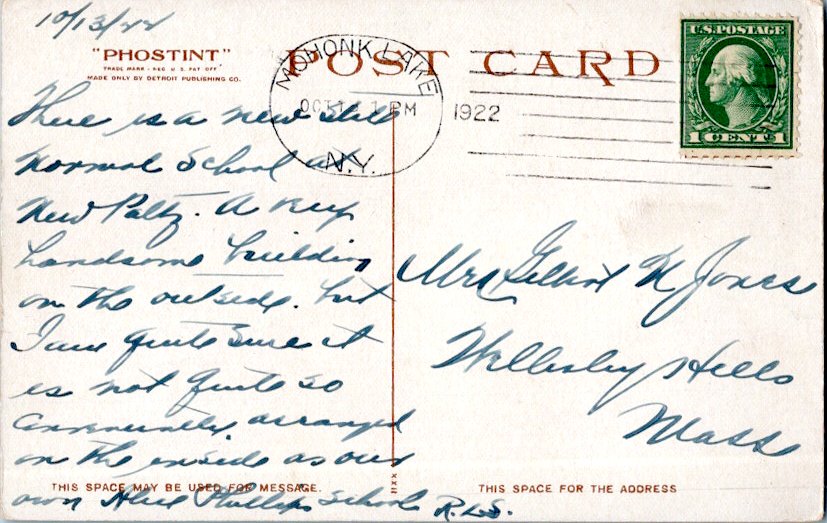 10/13/22
"PHOSTINT"
TRADE MARK - REG. U. S. PAT. OFF.
MADE ONLY BY DETROIT PUBLISHING CO.
POST CARD
MOHONK LAKE
OCT 1 PM
1922
N.Y.
U.S. POSTAGE
1 CENT 1
There is a new State
Normal School at
New Paltz. A very
handsome building
on the outside. but
I am quite sure it
is not quite so
conveniently arranged
on the inside as our
own Phillips School R.L.S.
Mrs Gilbert N Jones
Wellesley Hills
Mass
THIS SPACE MAY BE USED FOR MESSAGE.
THIS SPACE FOR THE ADDRESS